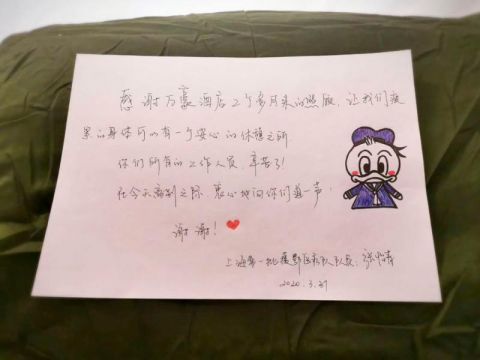 感谢万豪酒店2个多月来的照顾，让我们疲
累的身体可以有一个安心的休憩之所
你们所有的工作人员，辛苦了！
在今天离别之际，衷心地向你们道一声：
谢谢！
上海第一批援鄂医疗队队员：
2020.3.31